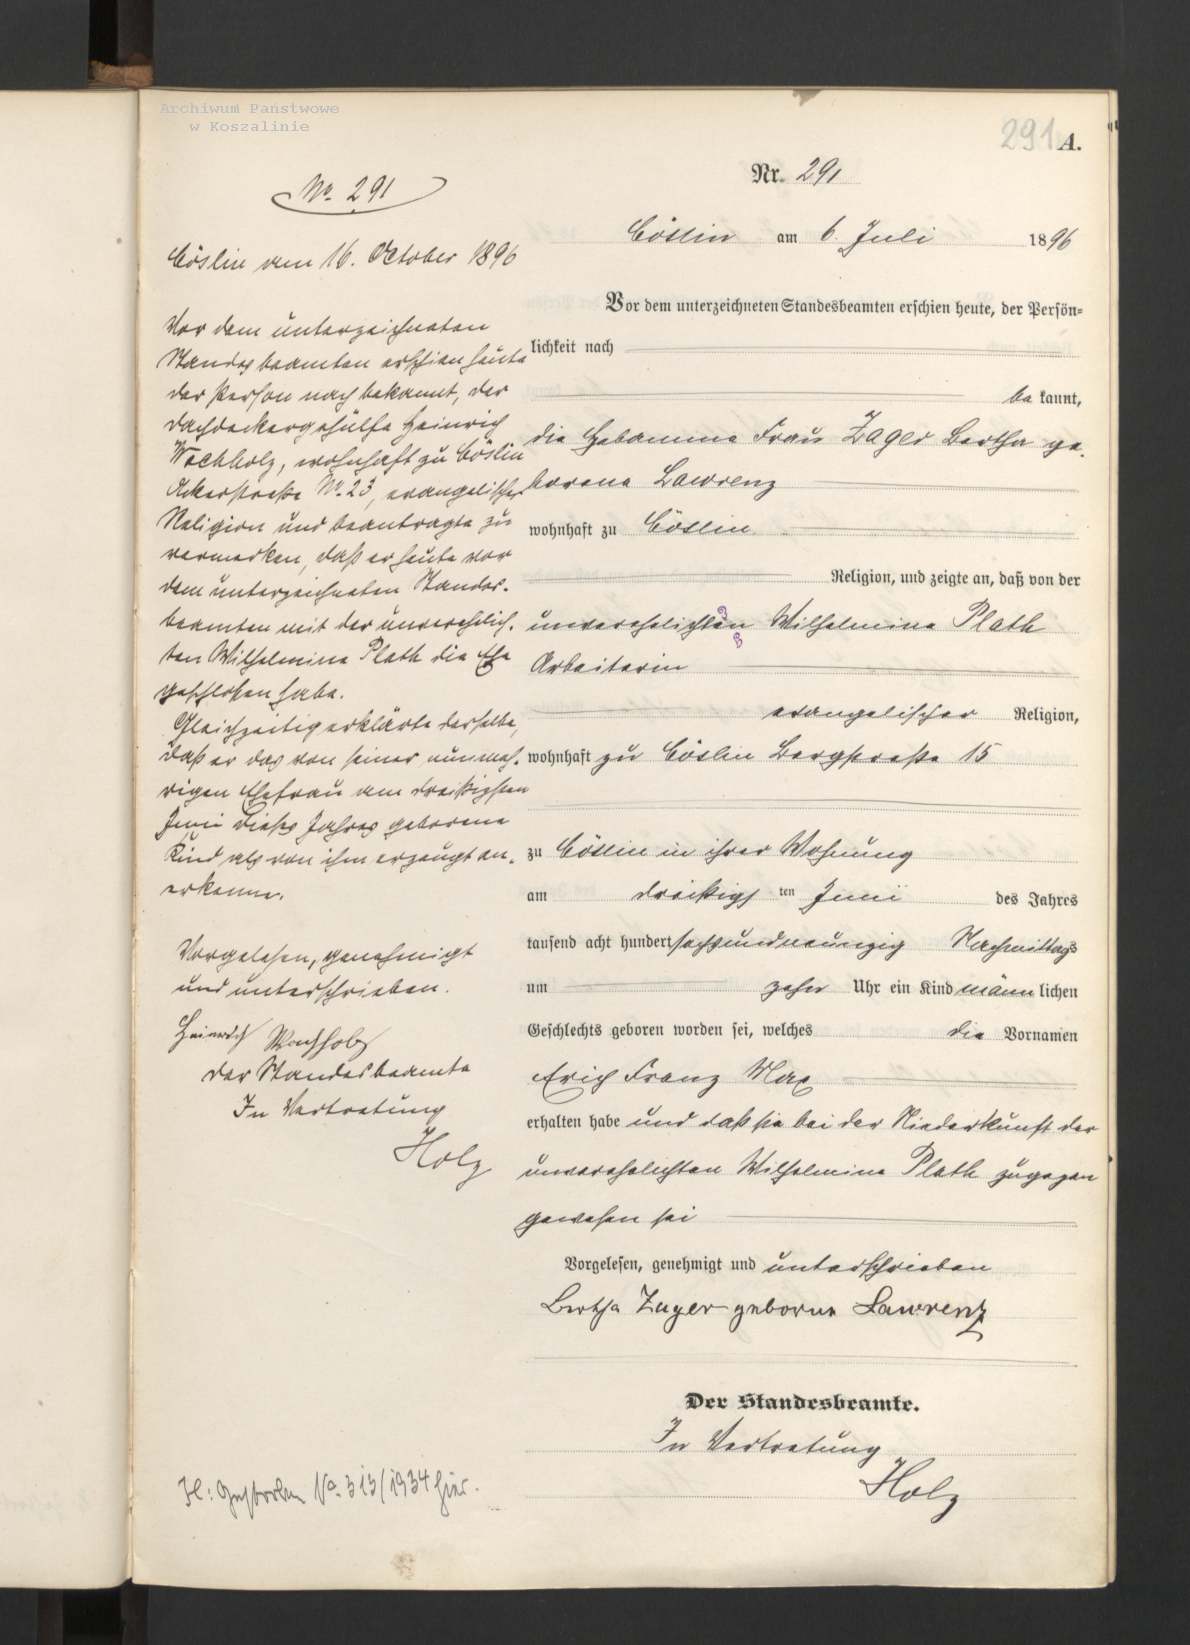 Archiwum Państwowe
w Koszalinie
291 A.
Nr. 291
Cöslin am 6. Juli 1896
Vor dem unterzeichneten Standesbeamten erschien heute, der Persön-
lichkeit nach
be kannt,
die Hebamme Frau Zager Bertha ge-
borene Lawrenz
wohnhaft zu Cöslin
Religion, und zeigte an, daß von der
unverehelichten Wilhelmine Plath
Arbeiterin
evangelischer Religion,
wohnhaft zu Cöslin Bergstraße 15
zu Cöslin in ihrer Wohnung
am dreißigs ten Juni des Jahres
tausend acht hundert sechsundneunzig Nachmittags
um zehn Uhr ein Kind männ lichen
Geschlechts geboren worden sei, welches die Vornamen
Erich Franz Max
erhalten habe und daß sie bei der Niederkunft der
unverehelichten Wilhelmine Plath zugegen
gewesen sei
Vorgelesen, genehmigt und unterschrieben
Bertha Zager geborne Lawrenz
Der Standesbeamte.
In Vertretung
Holz
No. 291
Cöslin am 16. October 1896
Vor dem unterzeichneten
Standesbeamten erschien heute
der Person nach bekannt, der
Dachdeckergehülfe Heinrich
Wachholz, wohnhaft zu Cöslin
Ackerstraße No. 23, evangelischer
Religion und beantragte zu
vermerken, daß er heute vor
dem unterzeichneten Standes-
beamten mit der unverehelich-
ten Wilhelmine Plath die Ehe
geschlossen habe.
Gleichzeitig erklärte derselbe,
daß er das von seiner nunmeh-
rigen Ehefrau am dreißigsten
Juni dieses Jahres geborene
Kind als von ihm erzeugt an-
erkenne.
Vorgelesen, genehmigt
und unterschrieben.
Heinrich Wachholz
Der Standesbeamte
In Vertretung
Holz
H: Gestorben No. 313/1934 hier.